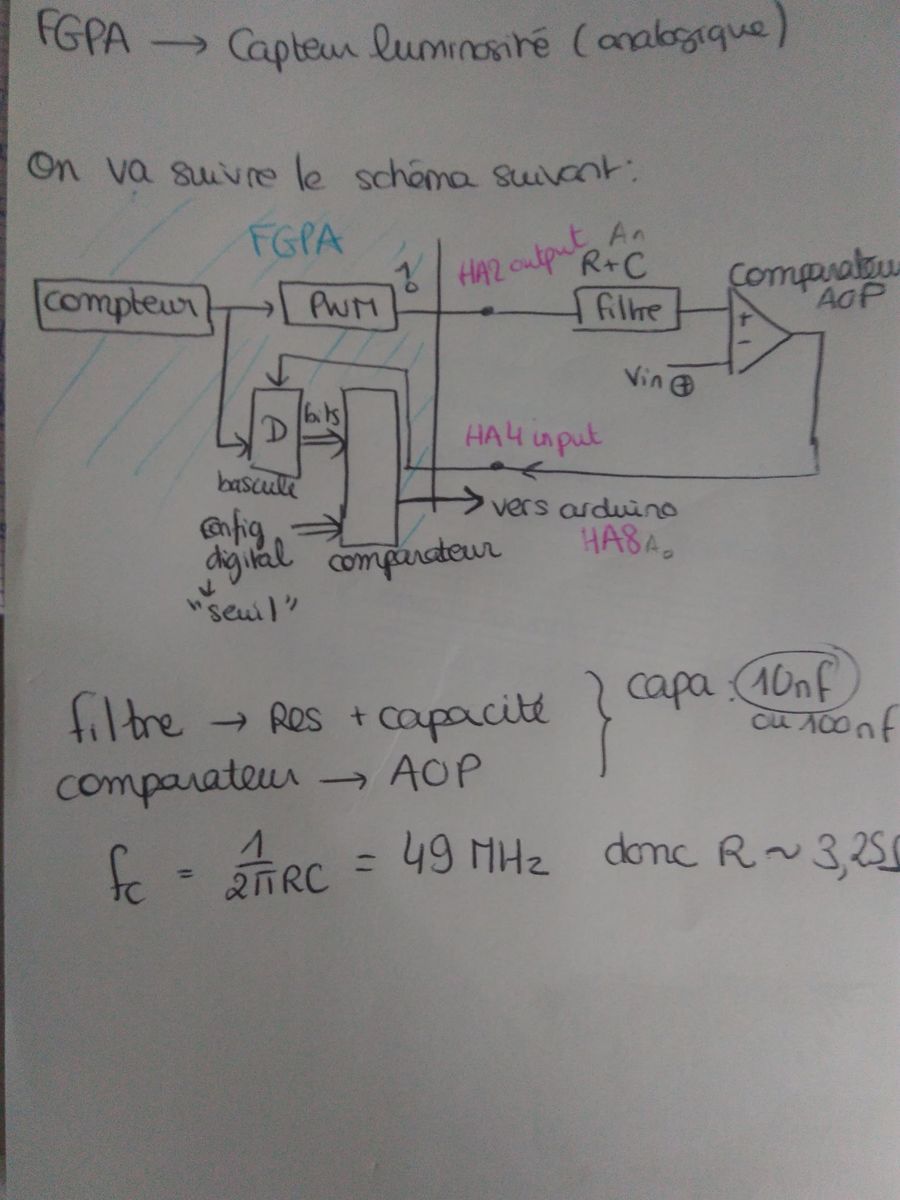 FGPA → Capteur luminosité (analogique)
On va suivre le schéma suivant:
FGPA
compteur
PWM
1
0
HA2 output
An
R+C
filtre
comparateur
AOP
+
-
Vin
D
bits
bascule
HA4 input
config
digital
"seuil"
comparateur
vers arduino
HA8 A0
filtre → Res + capacité
comparateur → AOP
capa : 10nf
ou 100nf
fc = 1/2πRC = 49 MHz donc R ~ 3,25Ω